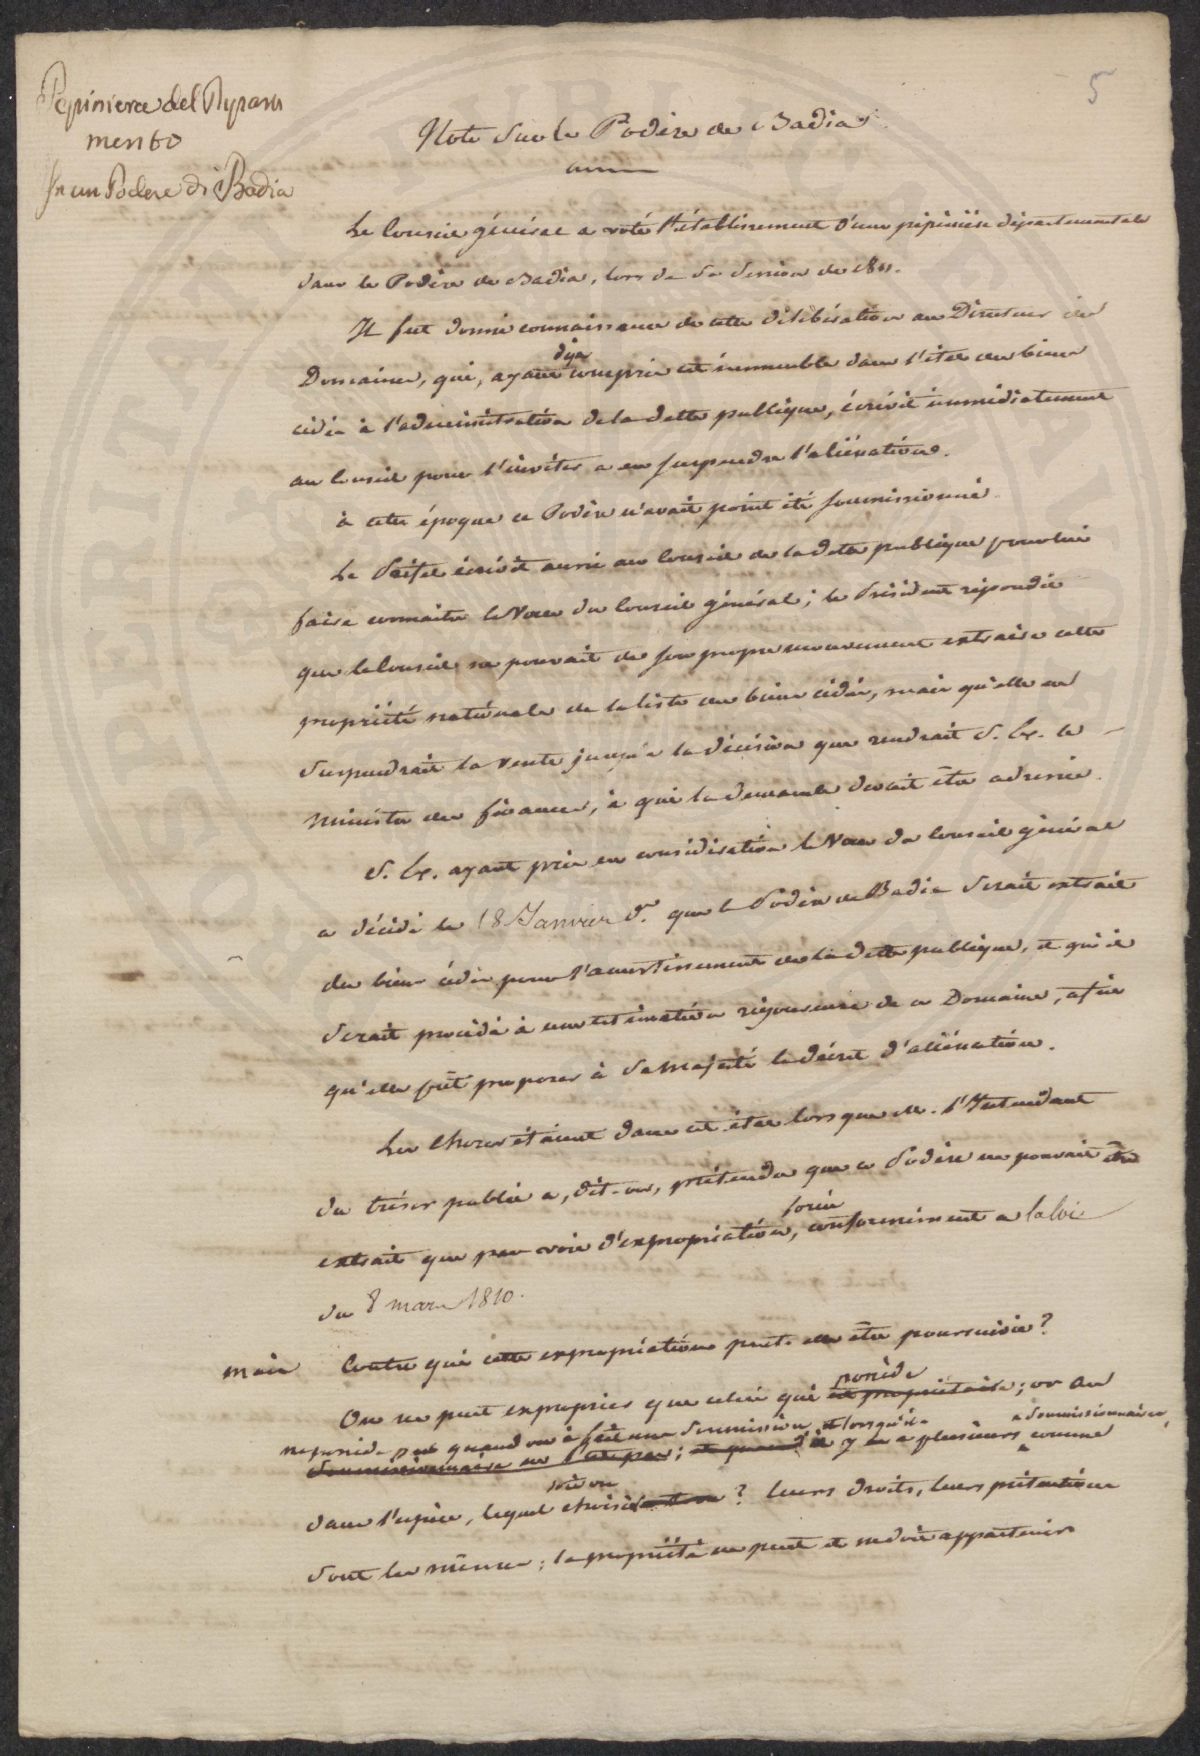 5
Pepiniera del Dipartimento
mento
In un Podere di Badia
Note sur le Podere de Badia
Le Conseil général a voté l'établissement d'une pépinière départementale
dans le Podère de Badia, lors de sa session de 1811.
Il fut donné connaissance de cette délibération au Directeur des
Domaines, qui, ayant déja compris cet immeuble dans l'état des biens
cédés à l'administration de la dette publique, écrivit immédiatement
au Conseil pour l'inviter a en suspendre l'aliénation.
à cette époque ce Podère n'avait point été soumissionné.
Le Préfet écrivit aussi au Conseil de la dette publique pour lui
faire connaitre le Voeu du Conseil général; le Président répondit
que le Conseil ne pouvait de son propre mouvement extraire cette
propriété nationale de la liste des biens cédés, mais qu'elle en
suspendrait la vente jusqu'à la décision que rendrait S. Ex. le
Ministre des finances, à qui la demande devait être adressée.
S. Ex. ayant pris en considération le Voeu du Conseil général
a décidé le 18 Janvier dr. que le Podère de Badia serait extrait
des biens cédés pour l'amortissement de la dette publique, et qu'il
serait procédé à une estimation rigoureuse de ce Domaine, afin
qu'elle pût proposer à Sa Majesté le décret d'aliénation.
Les choses étaient dans cet état lorsque M. l'Intendant
du trésor public a, dit-on, prétendu que ce Podère ne pouvait être
extrait que par voie d'expropriation forcée, conformément a la loi
du 8 mars 1810.
mais Contre qui cette expropriation peut-elle être poursuivie?
On ne peut exproprier que celui qui possède est propriétaire; or on
ne possède pas quand on a fait une soumission, et lorsqu'il
soumissionnaire ne l'est pas; et quand il y en a plusieurs soumissionnaires, comme
dans l'espèce, lequel choisira-t-on? leurs droits, leurs prétentions
sont les mêmes; la propriété ne peut et ne doit appartenir